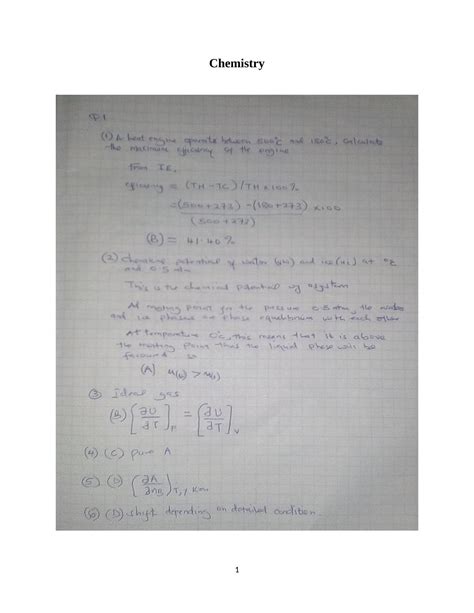 Chemistry
Q.1
(1) A heat engine operates between 500°C and 180°C, calculate
the maximum efficiency of the engine
From
efficiency = (TH - TC) / TH x 100%
= (500+273) - (180+273) x100
(500+273)
(B) = 41.40%
(2) Chemical potential of water and ice at 0°C
and 0.5 atm
This is the chemical potential of system
At melting point for the pressure 0.5 atm, the water
and ice phases are phase equilibrium with each other
At temperature 0°C, this means that it is above
the melting point thus the liquid phase will be
favoured so
(A) > 
(3) Ideal gas
(B) [∂U/∂T]P = [∂U/∂T]V
(4) (C) pure A
(5) (D) (∂A/∂nB)T,V
(6) (D) shift depending on detailed condition.
1